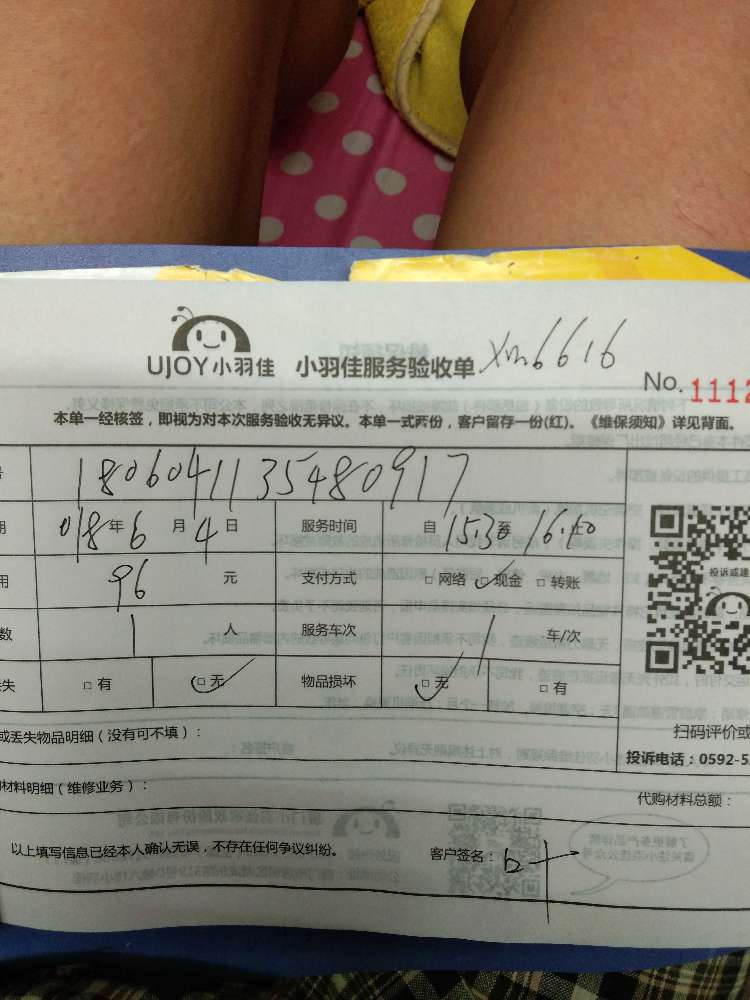 UJOY小羽佳 小羽佳服务验收单 xm6616
No. 1112
本单一经核签，即视为对本次服务验收无异议。本单一式两份，客户留存一份(红)。《维保须知》详见背面。
号 1806041135480917
期 018年6月4日 服务时间 自15:30至
用 96元 支付方式 □网络 □现金 □转账
数 1人 服务车次 1 车/次
丢失 □有 □无 物品损坏 □无 □有
投诉或建
或丢失物品明细（没有可不填）：
扫码评价或
投诉电话：0592-5
材料明细（维修业务）：
代购材料总额：
以上填写信息已经本人确认无误，不存在任何争议纠纷。 客户签名：